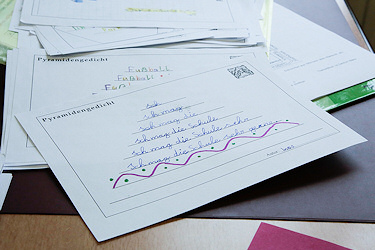 Pyramidengedicht
Fußball
Fußball
Fun!
Pyramidengedicht
Ich
Ich mag
Ich mag die
Ich mag die Schule
Ich mag die Schule sehr
Ich mag die Schule sehr gerne